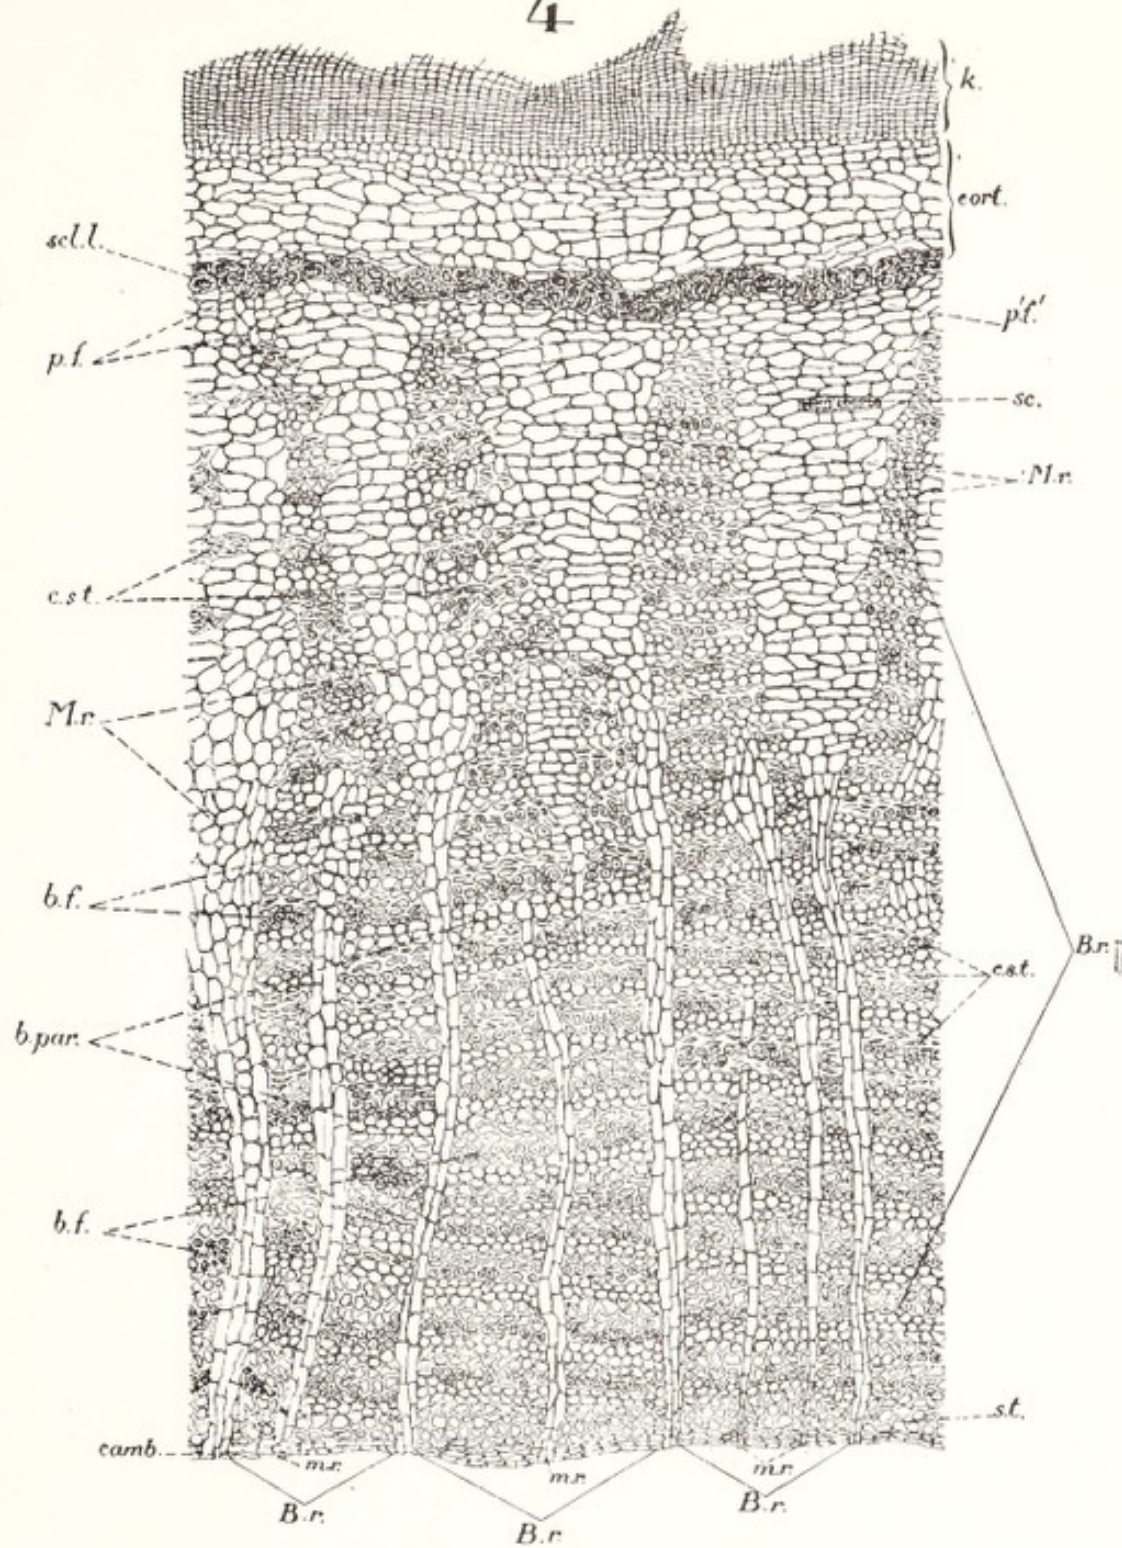 4
k.
cort.
scl.l.
p'.f.'
p.f.
sc.
M.r.
c.s.t.
M.r.
b.f.
B.r.
c.s.t.
b.par.
b.f.
s.t.
camb.
m.r.
m.r.
m.r.
B.r.
B.r.
B.r.